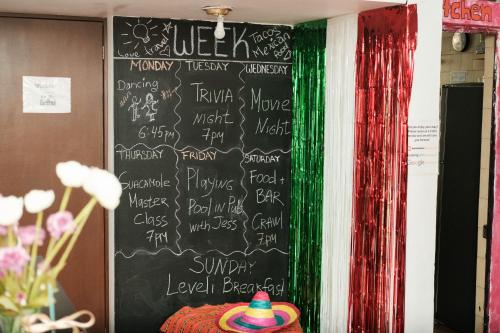 love
travel
WEEK
Tacos
Mexican
food
MONDAY
TUESDAY
WEDNESDAY
Dancing
6:45pm
TRIVIA
Night
7pm
Movie
Night
THURSDAY
FRIDAY
SATURDAY
GUACAMOLE
MASTER
CLASS
7PM
Playing
Pool in Pub
with Jess
Food +
BAR
CRAWL
7pm
SUNDAY
Leveli Breakfast
Kitchen
Google